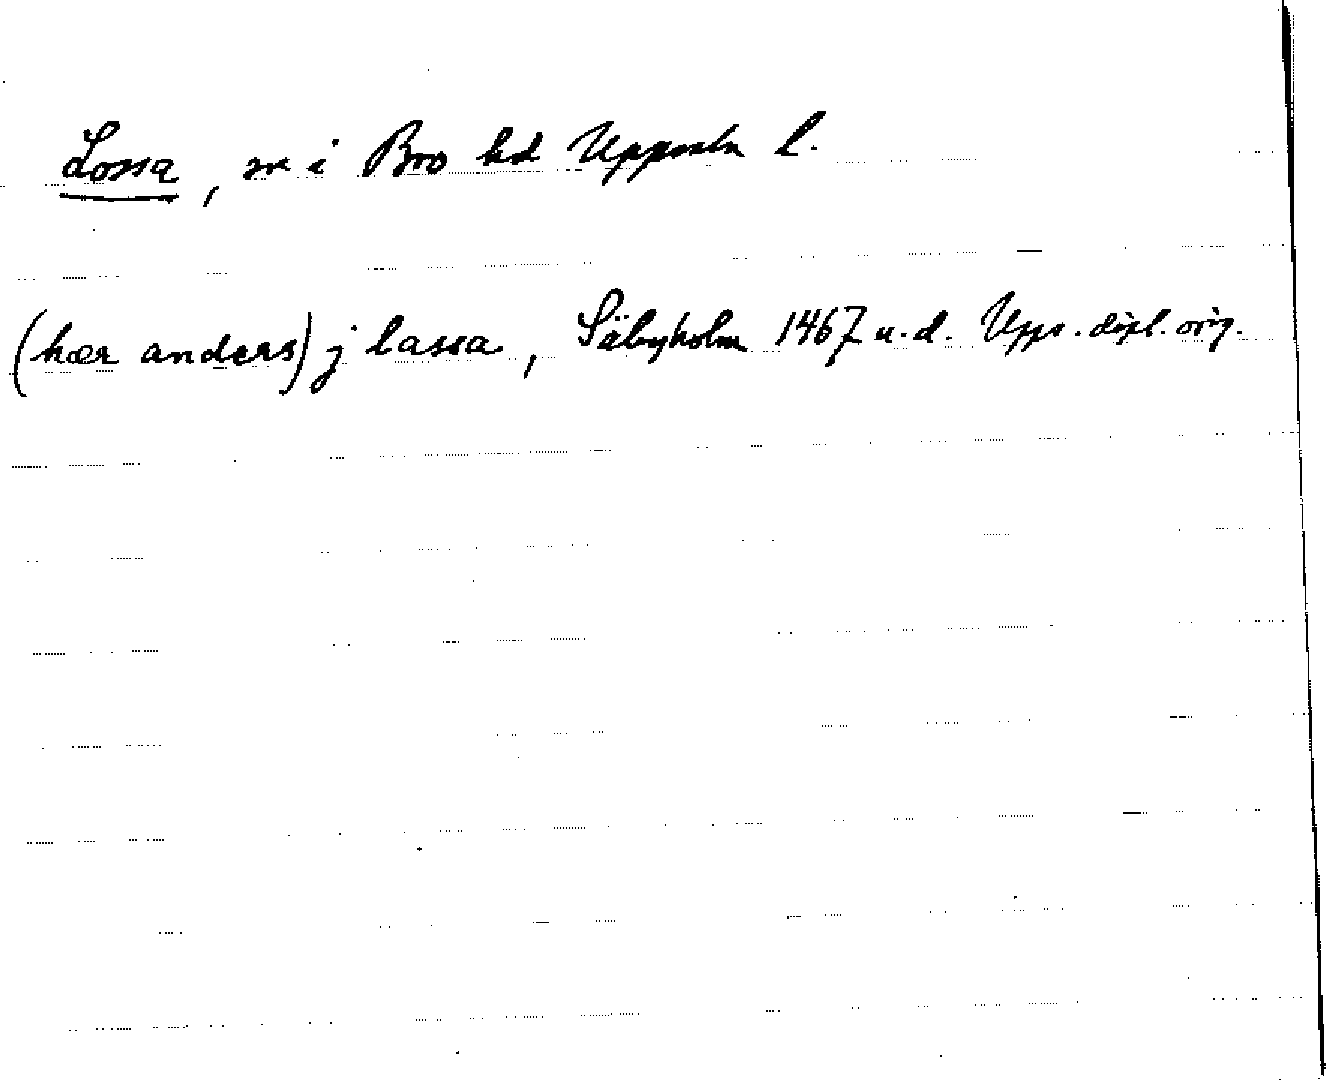 Lossa, sn i Bro hd Uppsala l.
(hær anders) j lassa, Säbyholm 1467 u.d. Upps. dipl. orig.